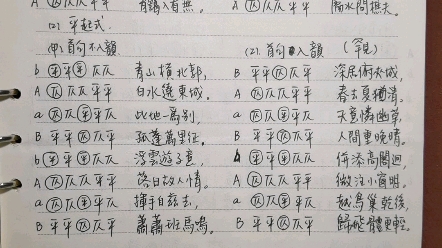 A ㊄仄仄平平 有錫入首無。 A ㊄仄仄平平 隔水問樵夫。
(2) 平起式
(甲) 首句不入韻 (乙) 首句入韻 (罕見)
b 平平仄仄 青山橫北郭, B 平平仄仄平 深居俯夾城,
A 仄仄仄平平 白水遶東城。 A 仄仄仄平平 春去夏猶清。
a 仄仄平平仄 此地一為別, a 仄仄平平仄 天意憐幽草,
B 平平仄仄平 孤蓬萬里征。 B 平平仄仄平 人間重晚晴。
b 平平平仄仄 浮雲遊子意, b 平平平仄仄 併添高閣迥,
A 仄仄仄平平 落日故人情。 A 仄仄仄平平 微注小窗明。
a 仄仄平平仄 揮手自茲去, a 仄仄平平仄 越鳥巢乾後,
B 平平仄仄平 蕭蕭班馬鳴。 B 平平仄仄平 歸飛體更輕。